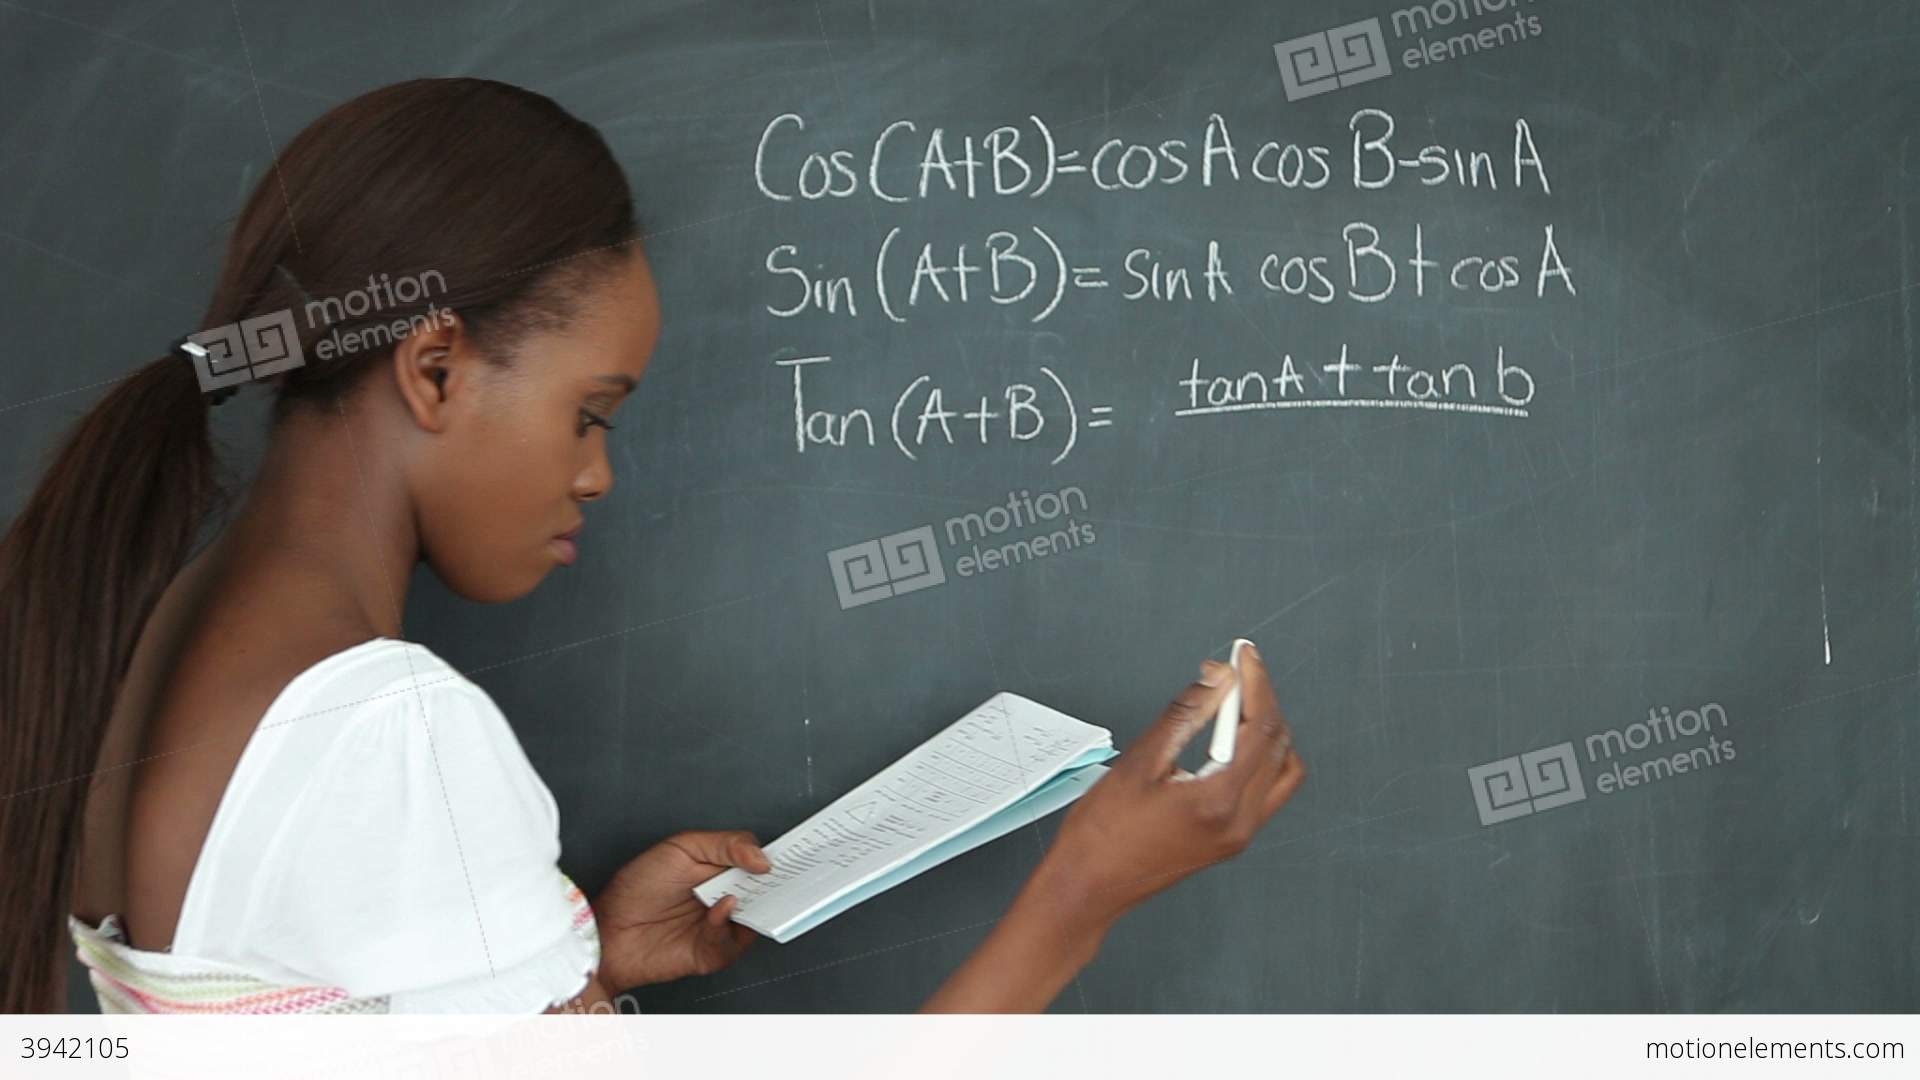 motion
elements
Cos(A+B)=cosA cos B-sin A
Sin(A+B)=sinA cosB+cos A
motion
elements
tanA+tan b
Tan(A+B)=
motion
elements
motion
elements
motion
elements
3942105
motionelements.com